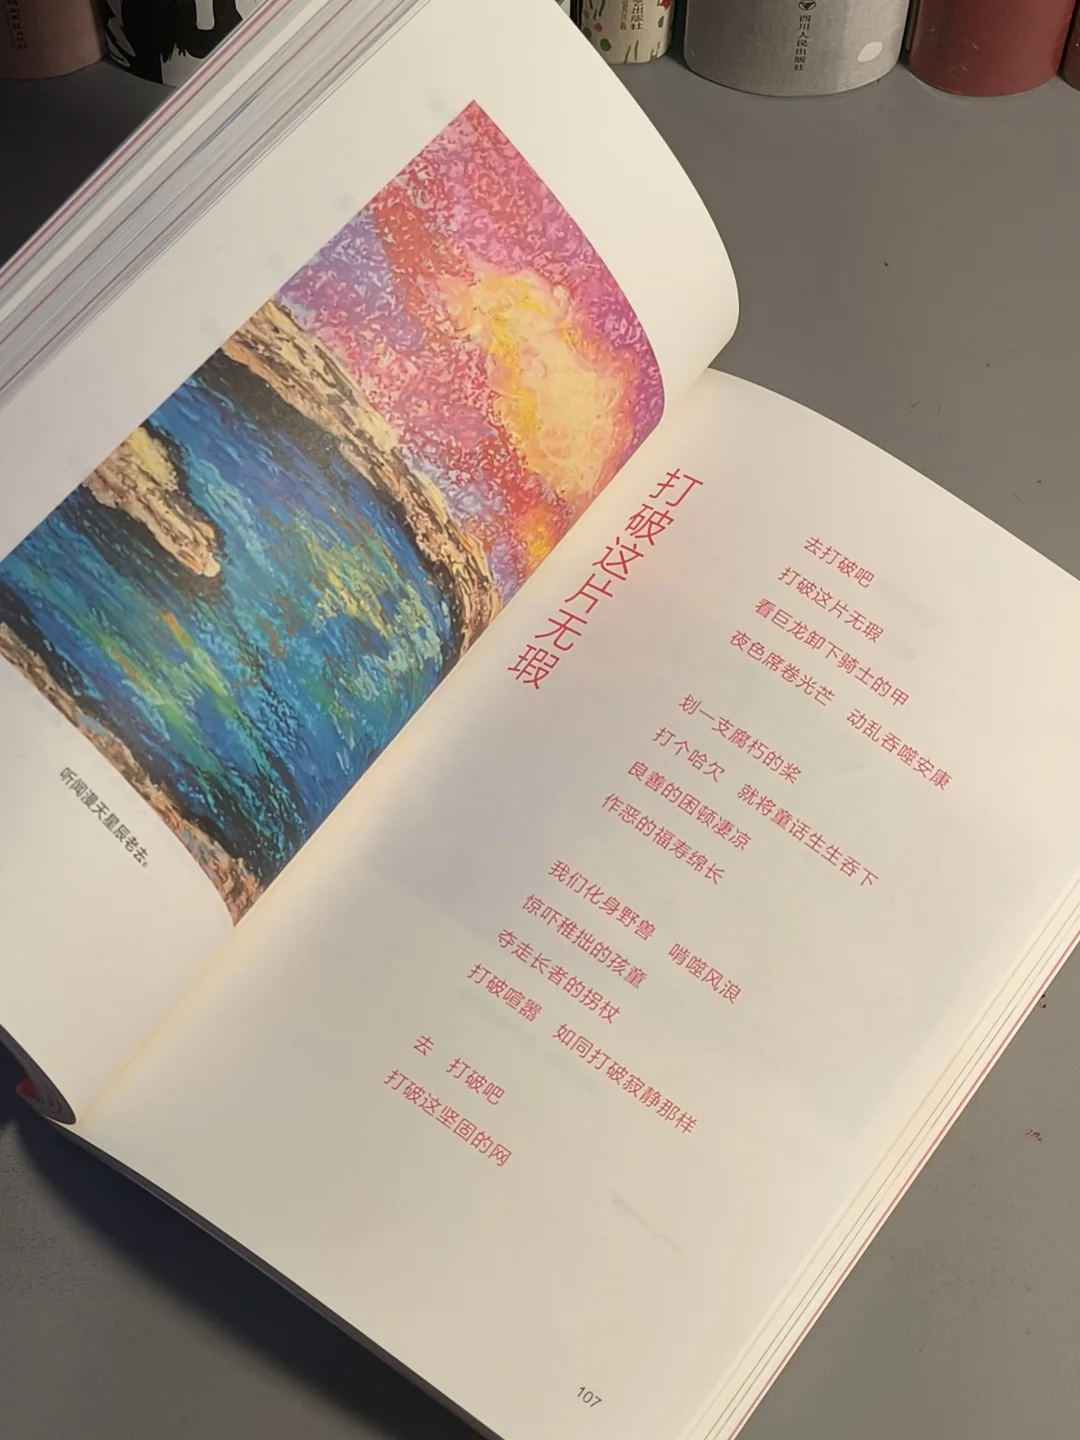 四川人民出版社
听闻漫天星辰老去。
打破这片无瑕
去打破吧
打破这片无瑕
看巨龙卸下骑士的甲
夜色席卷光芒　动乱吞噬安康
划一支腐朽的桨
打个哈欠　就将童话生生吞下
良善的困顿凄凉
作恶的福寿绵长
我们化身野兽　啃噬风浪
惊吓稚拙的孩童
夺走长者的拐杖
打破喧嚣　如同打破寂静那样
去　打破吧
打破这坚固的网
107